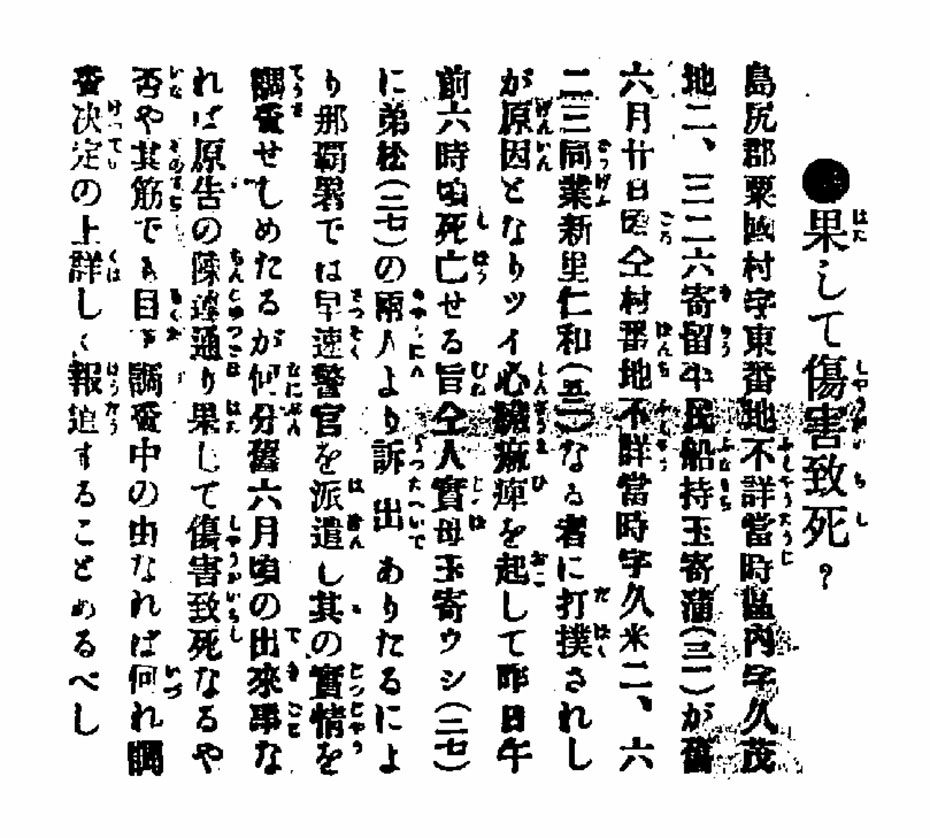 ●果して傷害致死?
島尻郡粟國村字東番地不詳當時區內字久茂
地二、三二六寄留平民船持玉寄蒲(三二)が舊
六月廿日頃仝村番地不詳當時字久米二、六
二三同業新里仁和(五二)なる者に打撲されし
が原因となりツイ心臓痲痺を起して昨日午
前六時頃死亡せる旨仝人實母玉寄ウシ(二七)
に弟松(二七)の兩人より訴出ありたるによ
り那覇署では早速警官を派遣し其の實情を
調査せしめたるが何分舊六月頃の出來事な
れば原告の陳述通り果して傷害致死なるや
否や其筋でも目下調査中の由なれば何れ調
査決定の上詳しく報道することあるべし